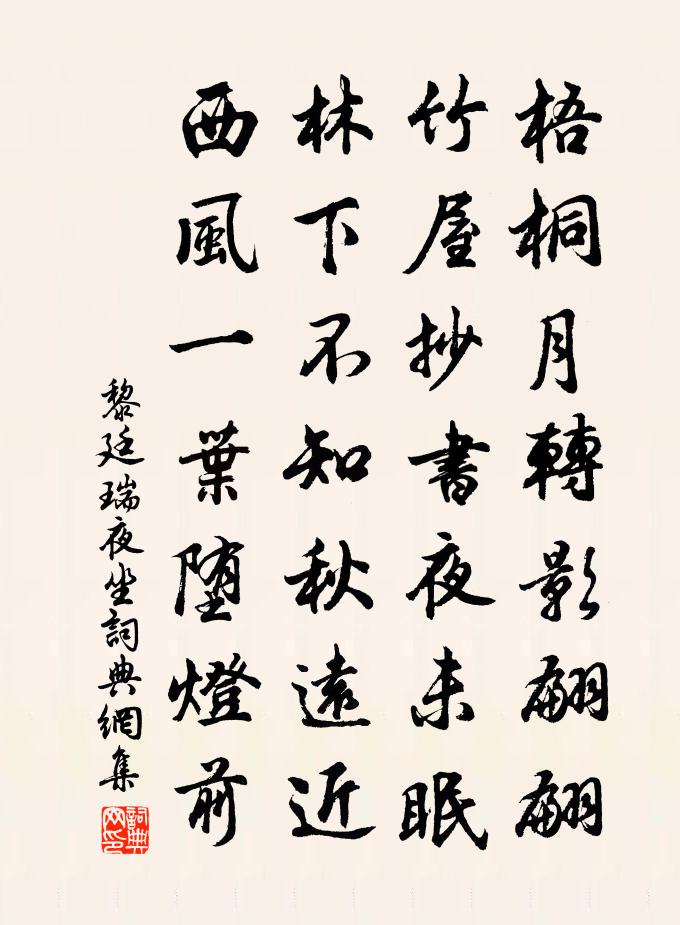 梧桐月轉影翩翩
竹屋抄書夜未眠
林下不知秋遠近
西風一葉堕燈前
黎廷瑞夜坐詞典網集
詞典网印